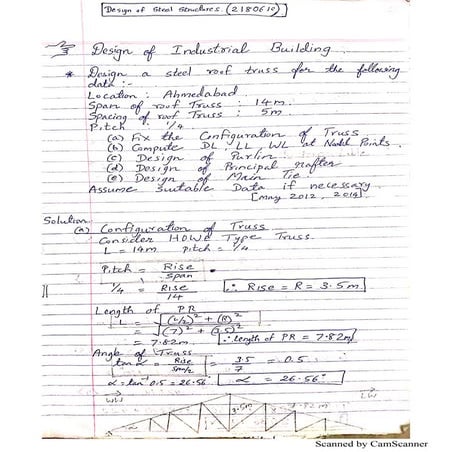 Design of Steel Structures. (2180610)
Design of Industrial Building
* Design a steel roof truss for the following
data :-
Location : Ahmedabad
Span of roof Truss : 14m
Spacing of roof Truss : 5m
Pitch : 1/4
(a) Fix the Configuration of Truss
(b) Compute DL, LL, WL at Nodal Points.
(c) Design of Purlin
(d) Design of Principal Rafter
(e) Design of Main Tie
Assume suitable Data if necessary
[May 2012, 2014]
Solution
(a) Configuration of Truss
Consider HOWE Type Truss.
L = 14m pitch = 1/4
Pitch = Rise / Span
1/4 = Rise / 14 ∴ Rise = R = 3.5m
Length of PR
L = √(L/2)² + (R)²
= √(7)² + (3.5)²
= 7.82m ∴ length of PR = 7.82m
Angle of Truss
tan α = Rise / Span/2 = 3.5 / 7 = 0.5
α = tan⁻¹ 0.5 = 26.56 α = 26.56°
WW LW
3.5m 7.82m
Scanned by CamScanner